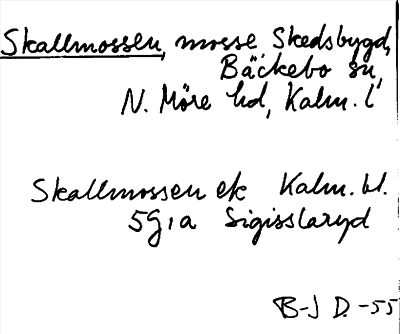 Skallmossen, mosse, Skedsbygd,
Bäckebo sn,
N. Möre hd, Kalm. l
Skallmossen ek Kalm. bl.
5G1a Sigisslaryd
B-J D. -55